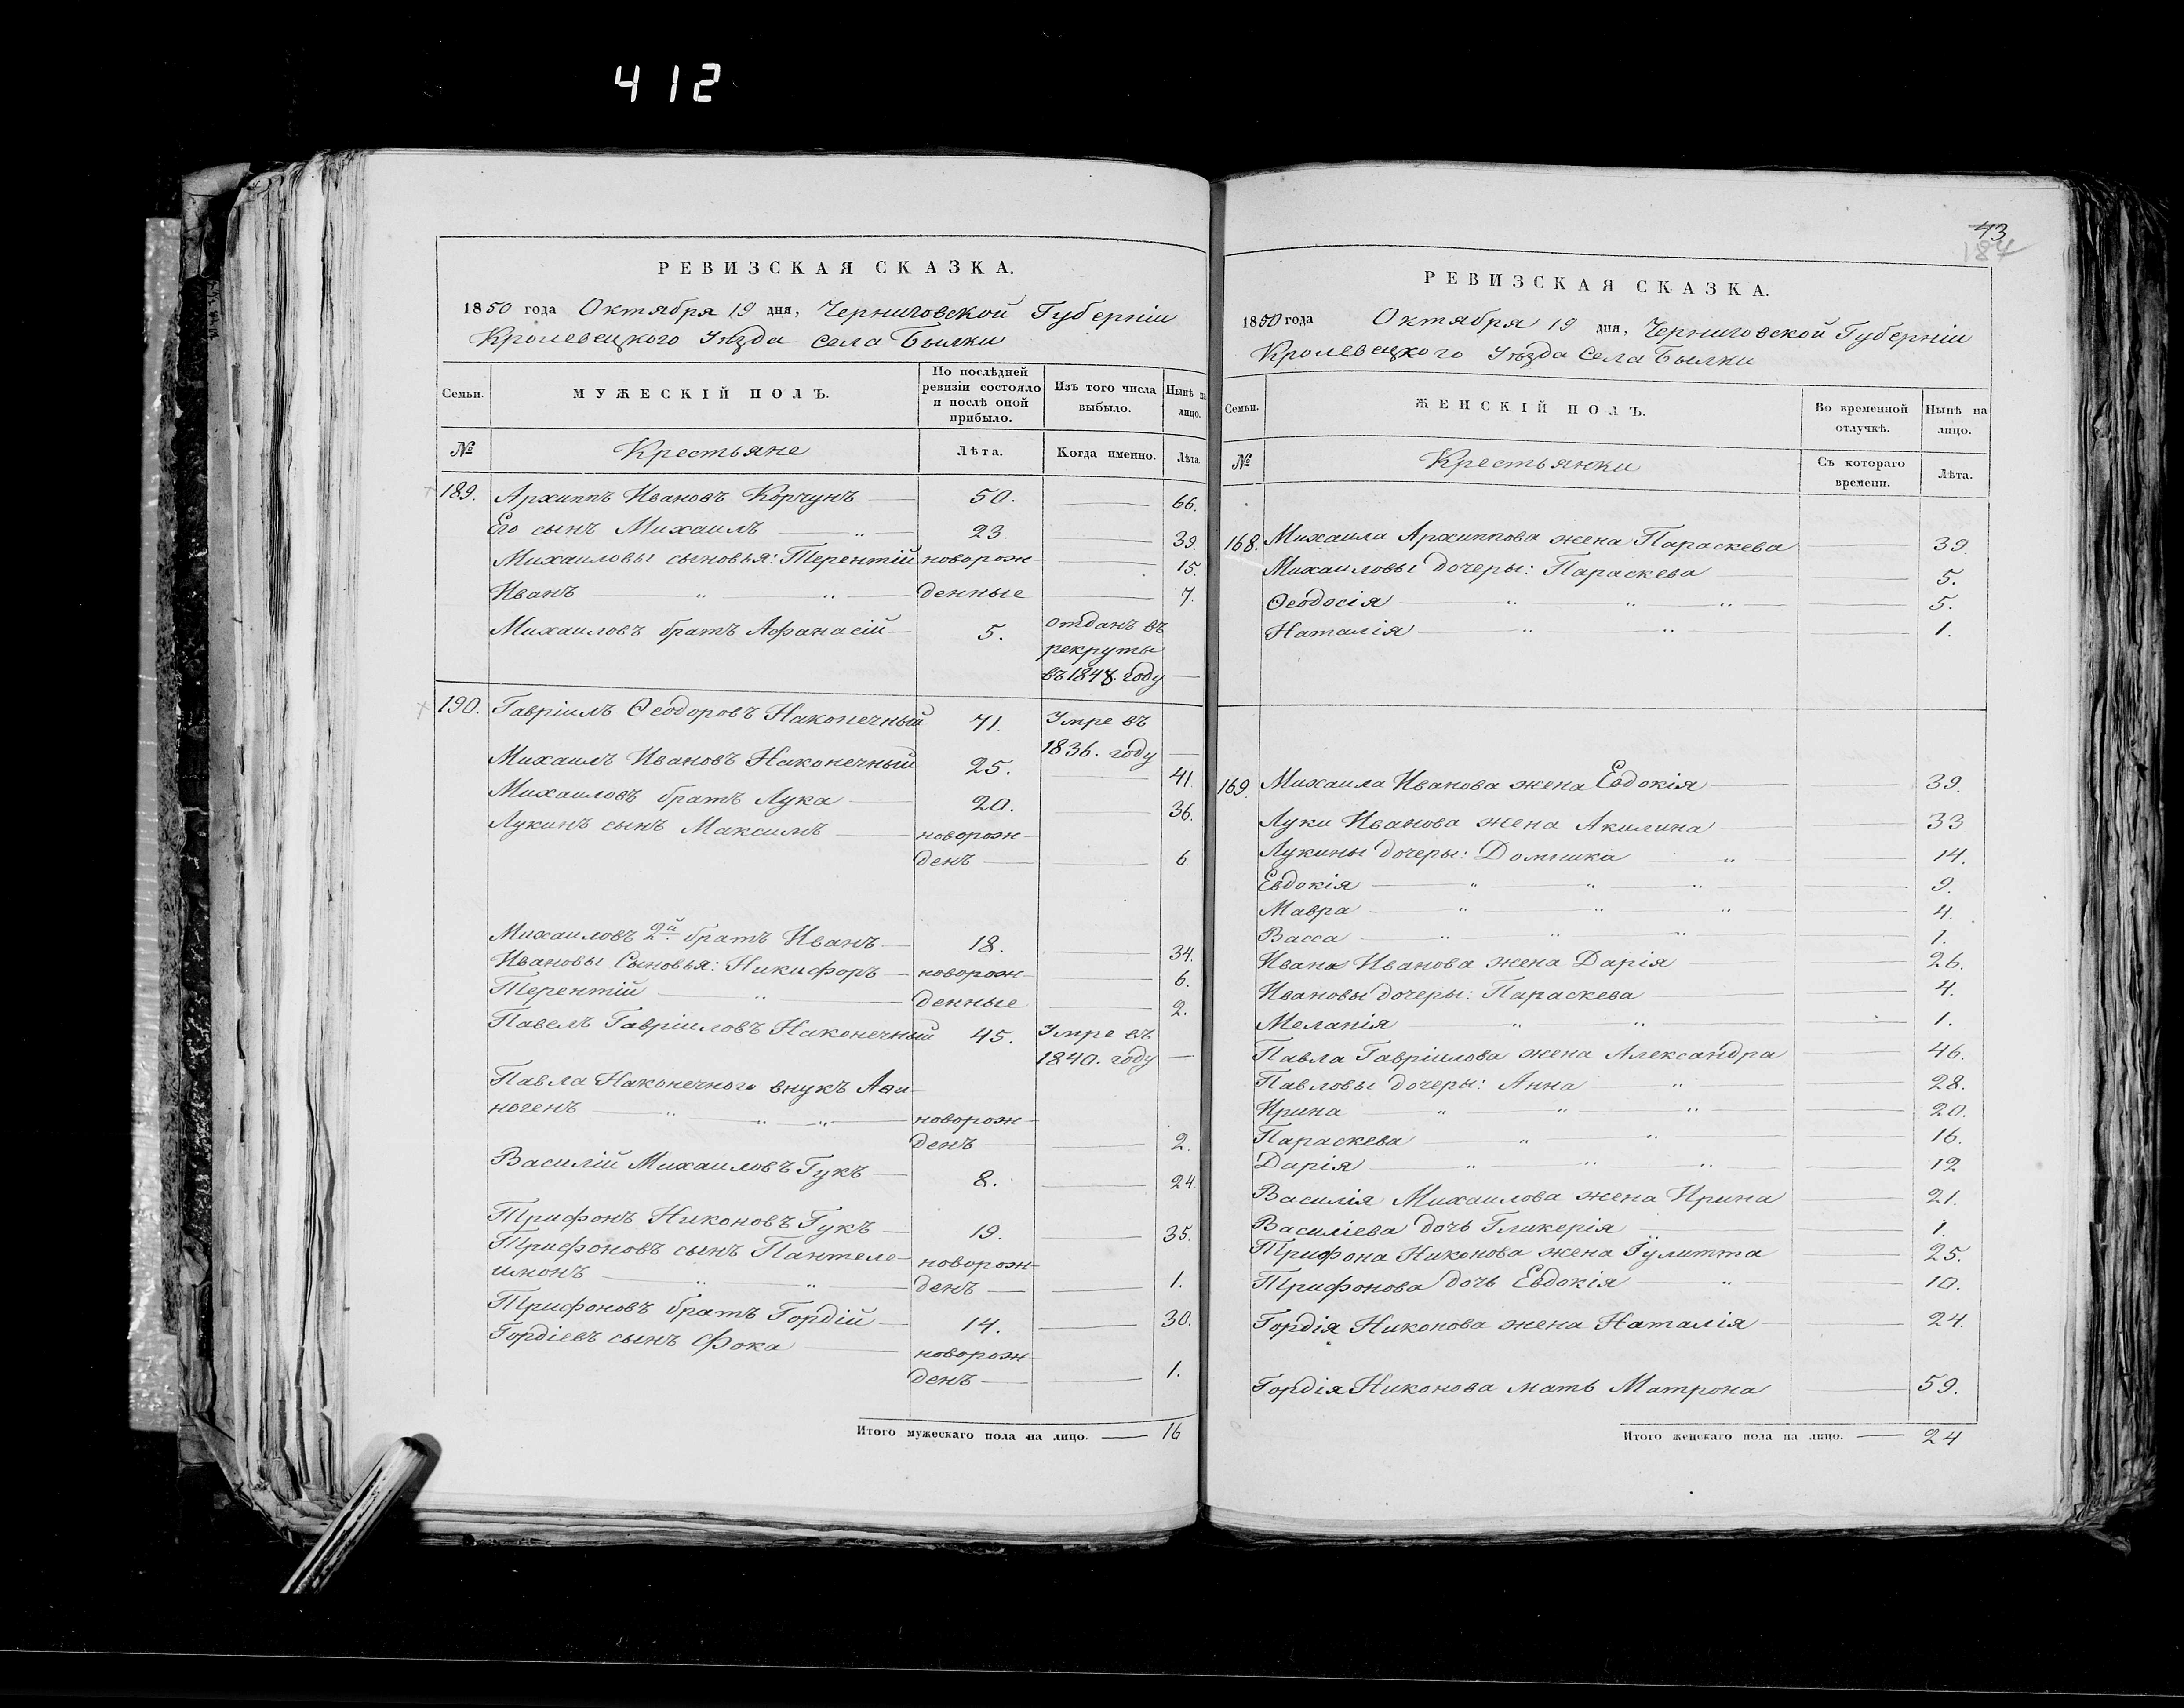 412
РЕВИЗСКАЯ СКАЗКА.
1850 года Октября 19 дня, Черниговской Губерніи
Кролевецкого Уѣзда Села Былки
Семьи.
МУЖЕСКІЙ ПОЛЪ.
По послѣдней ревизіи состояло и послѣ оной прибыло.
Изъ того числа выбыло.
Нынѣ на лицо.
№ Крестьяне Лѣта. Когда именно. Лѣта
189. Архиппъ Ивановъ Корчунъ 50. 66.
Его сынъ Михаилъ 23. 39.
Михаиловы сыновья: Терентій новорож- 15.
Иванъ денные 7.
Михаиловъ братъ Афанасій 5. отданъ въ
рекруты
въ 1848. году
190. Гавріилъ Ѳеодоровъ Наконечный 71. Умре въ
1836. году
Михаилъ Ивановъ Наконечный 25. 41.
Михаиловъ братъ Лука 20. 36.
Лукинъ сынъ Максимъ новорож-
денъ 6.
Михаиловъ 2й братъ Иванъ 18. 34.
Ивановы Сыновья: Никифоръ новорож- 6.
Терентій денные 2.
Павелъ Гавріиловъ Наконечный 45. Умре въ
1840. году
Павла Наконечного внукъ Аѳи-
ногенъ новорож-
денъ 2.
Василій Михаиловъ Гукъ 8. 24.
Трифонъ Никоновъ Гукъ 19. 35.
Трифоновъ сынъ Пантеле- новорож-
имонъ денъ 1.
Трифоновъ братъ Гордій 14. 30.
Гордіевъ сынъ Фока новорож-
денъ 1.
Итого мужескаго пола на лицо. 16
43
184
РЕВИЗСКАЯ СКАЗКА.
1850 года Октября 19 дня, Черниговской Губерніи
Кролевецкого Уѣзда Села Былки
Семьи.
ЖЕНСКІЙ ПОЛЪ.
Во временной отлучкѣ.
Нынѣ на лицо.
№ Крестьянки Съ котораго времени. Лѣта.
168. Михаила Архиппова жена Параскева 39.
Михаиловы дочеры: Параскева 5.
Ѳеодосія 5.
Наталія 1.
169. Михаила Иванова жена Евдокія 39.
Луки Иванова жена Акилина 33
Лукины дочеры: Домникa 14.
Евдокія 9.
Мавра 4.
Васса 1.
Ивана Иванова жена Дарія 26.
Ивановы дочеры: Параскева 4.
Меланія 1.
Павла Гавріилова жена Александра 46.
Павловы дочеры: Анна 28.
Ирина 20.
Параскева 16.
Дарія 12
Василія Михаилова жена Ирина 21.
Василіева дочь Гликерія 1.
Трифона Никонова жена Іулитта 25.
Трифонова дочь Евдокія 10.
Гордія Никонова жена Наталія 24.
Гордія Никонова мать Матрона 59.
Итого женскаго пола на лицо. 24